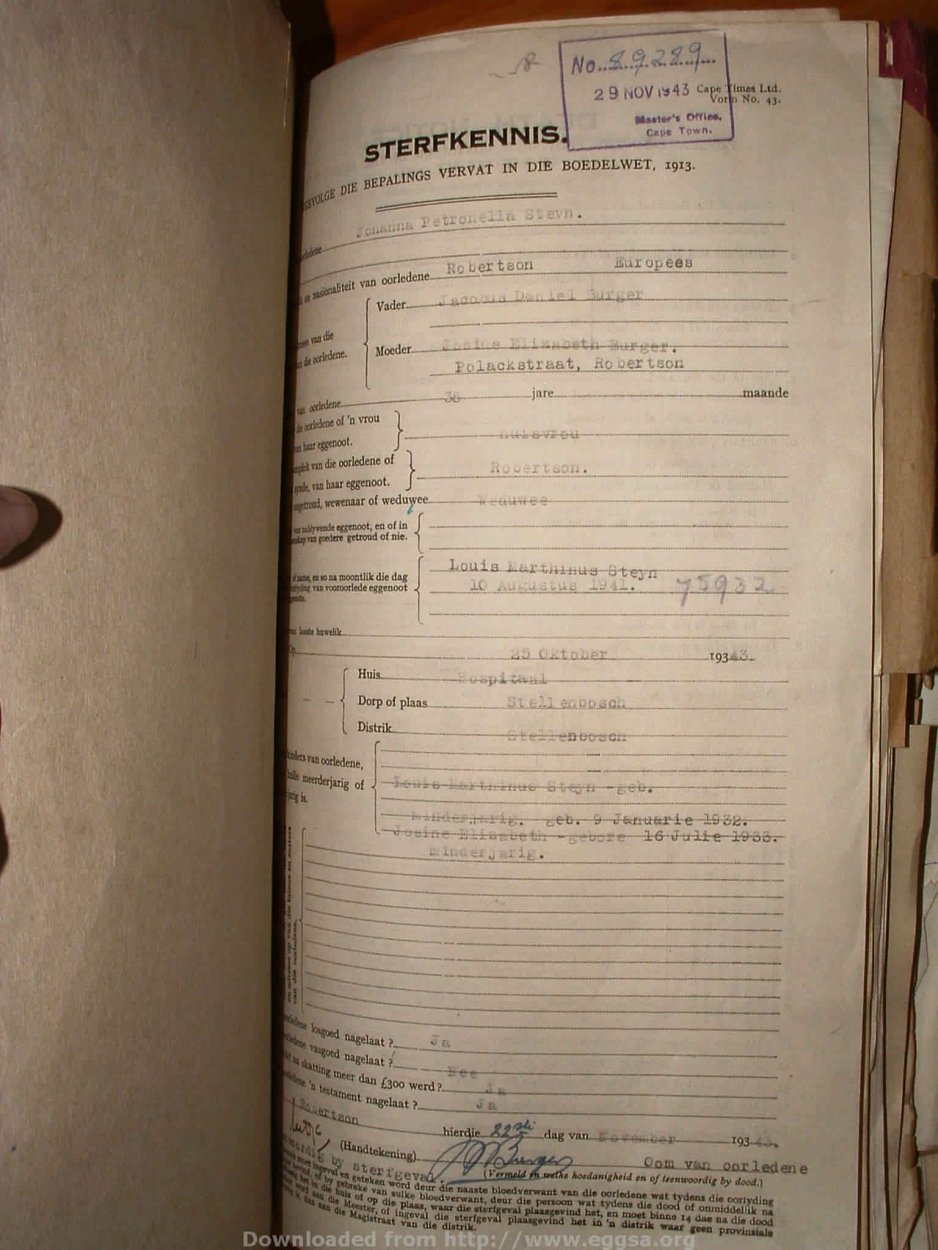 No. 89289
29 NOV 1943 Cape Times Ltd.
Vorm No. 43.
Master's Office,
Cape Town.
STERFKENNIS.
DIE BEPALINGS VERVAT IN DIE BOEDELWET, 1913.
Johanna Petronella Steyn.
nasionaliteit van oorledene Robertson Europees
Vader Jacobus Daniel Burger
van die
die oorledene.
Moeder Josine Elizabeth Burger.
Polackstraat, Robertson
van oorledene jare maande
oorledene of 'n vrou
haar eggenoot. Huisvrou
van die oorledene of
van haar eggenoot. Robertson.
wewenaar of weduwee Weduwee
eggenoot, en of in
van goedere getroud of nie.
Louis Marthinus Steyn
en so na moontlik die dag
10 Augustus 1941. 75932
van vooroorlede eggenoot
laaste huwelik
Op 25 Oktober 1943.
Huis Hospitaal
Dorp of plaas Stellenbosch
Distrik Stellenbosch
van oorledene,
meerderjarig of
Louis Marthinus Steyn -geb.
is.
Minderjarig. geb. 9 Januarie 1932.
Josine Elizabeth -gebore 16 Julie 1933.
minderjarig.
van die oorledene.
losgoed nagelaat ? Ja
vasgoed nagelaat ? Nee
skatting meer dan £300 werd ? Ja
'n testament nagelaat ? Ja
Robertson
hierdie 22ste dag van November 1943.
(Handtekening) Burger Oom van oorledene
by sterfgeval.
(Vermeld in welke hoedanigheid en of teenwoordig by dood.)
moet ingevul en geteken word deur die naaste bloedverwant van die oorledene wat tydens die oorlyding
of by gebreke van sulke bloedverwant, deur die persoon wat tydens die dood of onmiddellik na
in die huis of op die plaas, waar die sterfgeval plaasgevind het, en moet binne 14 dae na die dood
aan die Meester, of ingeval die sterfgeval plaasgevind het in 'n distrik waar geen provinsiale
dan aan die Magistraat van die distrik.
Downloaded from http://www.eggsa.org